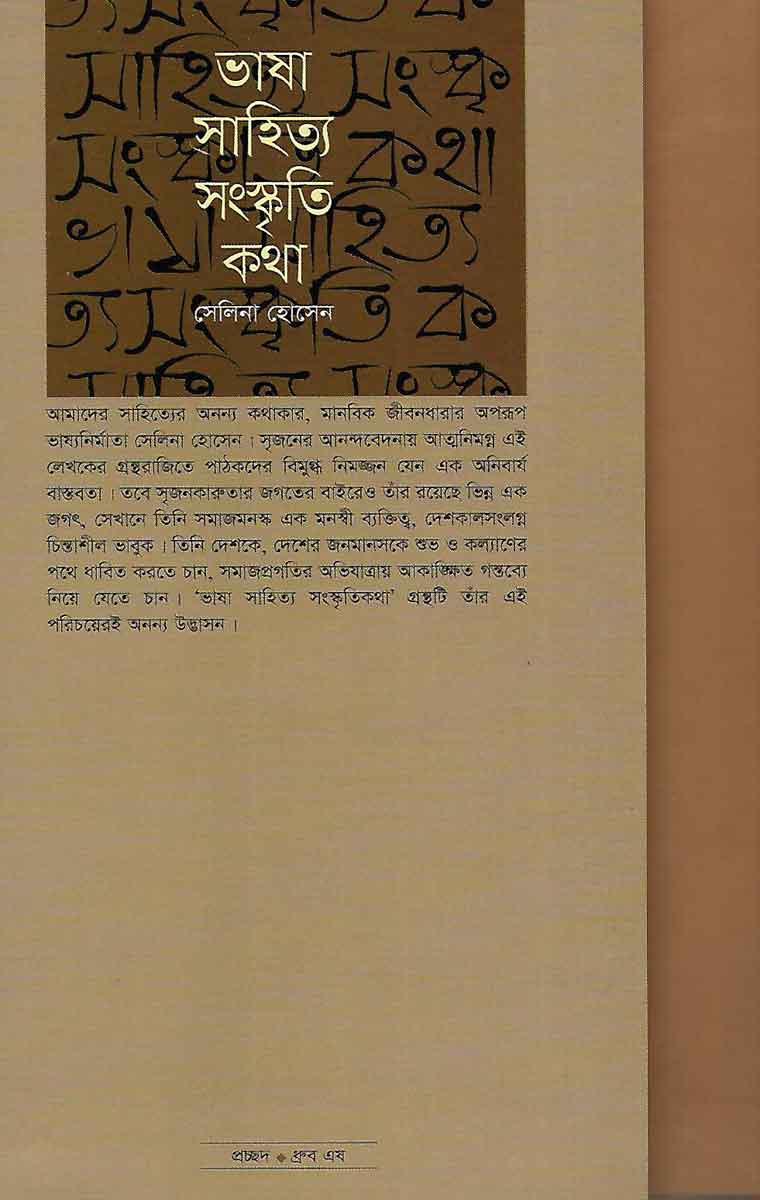 ত্য সংস্কৃতি ক
সাহিত্য সংস্কৃ
সংস্কৃতি কথা
ভাষা সাহিত্য
ত্য সংস্কৃতি ক
ভাষা
সাহিত্য
সংস্কৃতি
কথা
সেলিনা হোসেন
আমাদের সাহিত্যের অনন্য কথাকার, মানবিক জীবনধারার অপরূপ
ভাষ্যনির্মাতা সেলিনা হোসেন। সৃজনের আনন্দবেদনায় আত্মনিমগ্ন এই
লেখকের গ্রন্থরাজিতে পাঠকদের বিমুগ্ধ নিমজ্জন যেন এক অনিবার্য
বাস্তবতা। তবে সৃজনকারুতার জগতের বাইরেও তাঁর রয়েছে ভিন্ন এক
জগৎ, সেখানে তিনি সমাজমনস্ক এক মনস্বী ব্যক্তিত্ব, দেশকালসংলগ্ন
চিন্তাশীল ভাবুক। তিনি দেশকে, দেশের জনমানসকে শুভ ও কল্যাণের
পথে ধাবিত করতে চান, সমাজপ্রগতির অভিযাত্রায় আকাঙ্ক্ষিত গন্তব্যে
নিয়ে যেতে চান। ‘ভাষা সাহিত্য সংস্কৃতিকথা’ গ্রন্থটি তাঁর এই
পরিচয়েরই অনন্য উদ্ভাসন।
প্রচ্ছদ ◆ ধ্রুব এষ